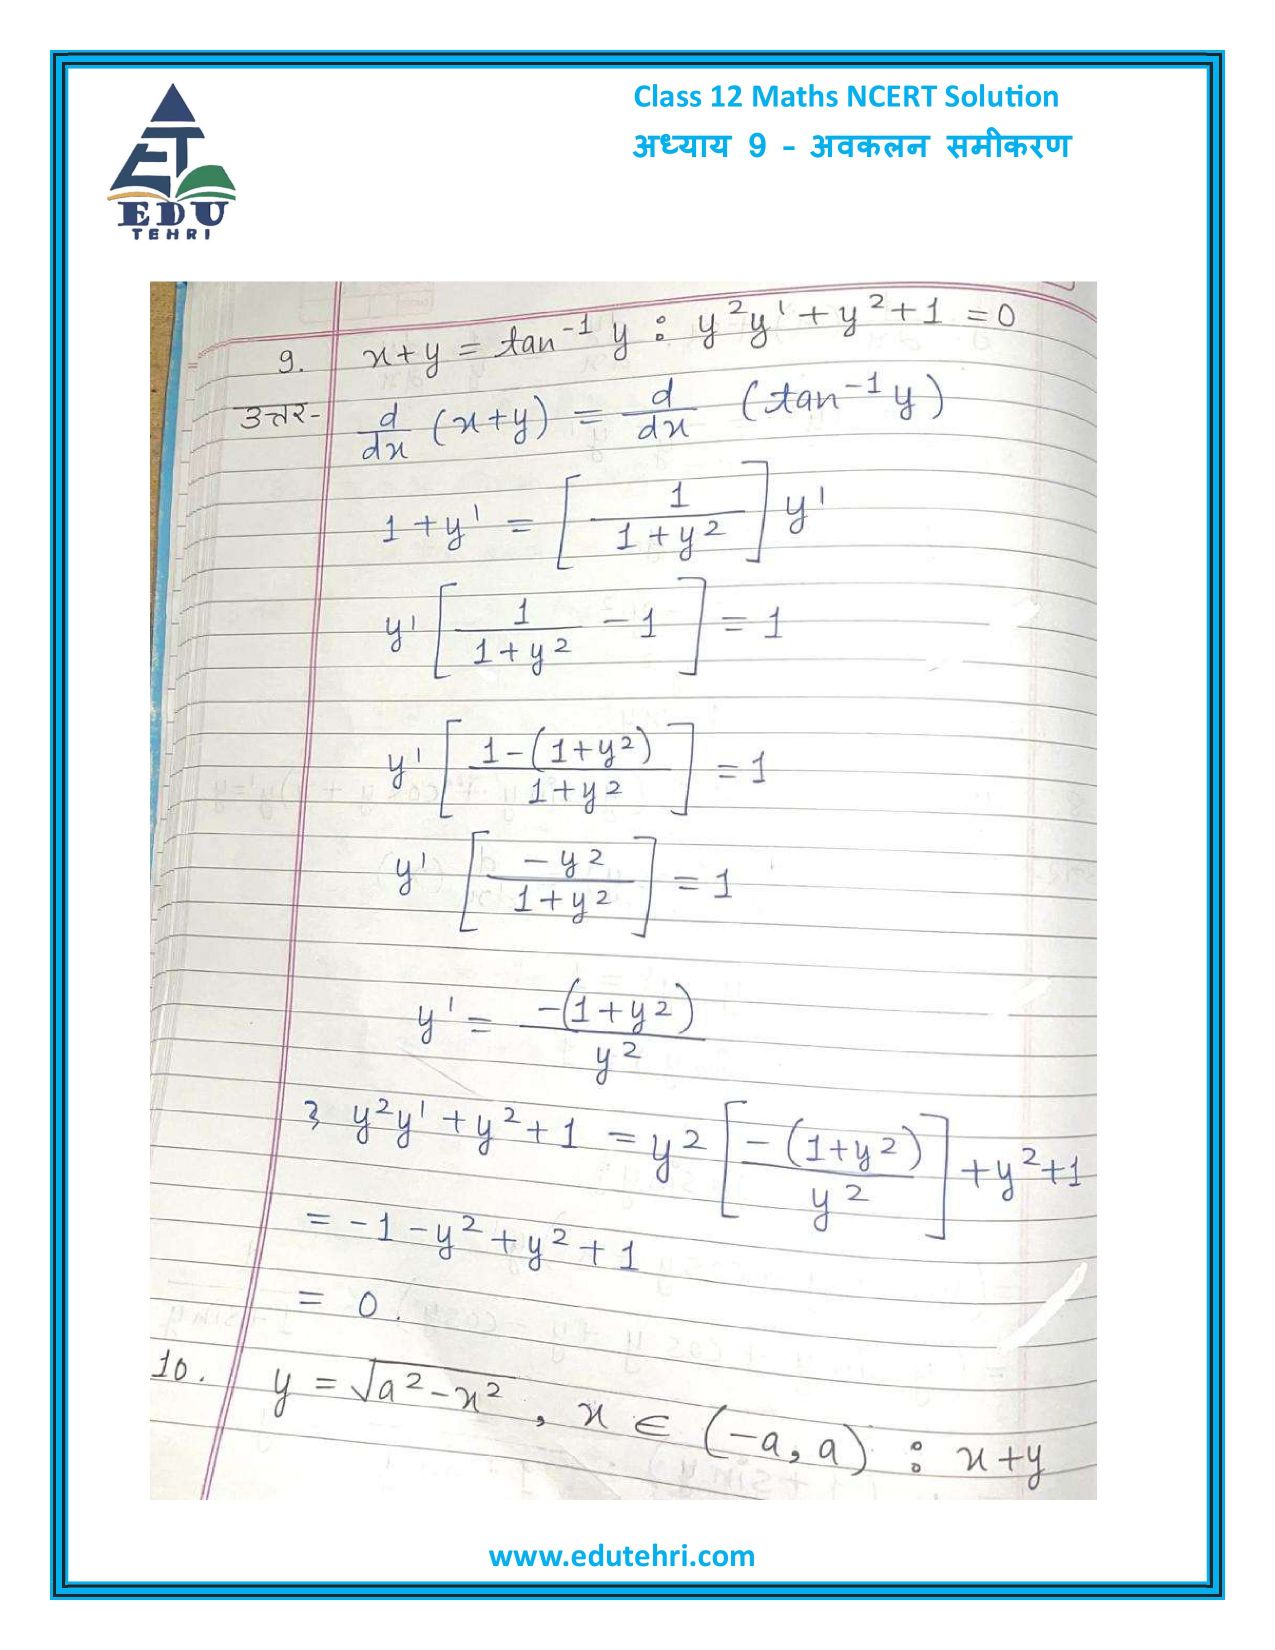 Class 12 Maths NCERT Solution
अध्याय 9 - अवकलन समीकरण
EDU
TEHRI
9. x+y = tan⁻¹ y : y²y' + y² + 1 = 0
उत्तर- d/dx (x+y) = d/dx (tan⁻¹ y)
1 + y' = [1/(1+y²)] y'
y' [1/(1+y²) - 1] = 1
y' [(1-(1+y²))/(1+y²)] = 1
y' [-y²/(1+y²)] = 1
y' = -(1+y²)/y²
y²y' + y² + 1 = y² [-(1+y²)/y²] + y² + 1
= -1 - y² + y² + 1
= 0.
10. y = √(a²-x²), x ∈ (-a, a) : x+y
www.edutehri.com